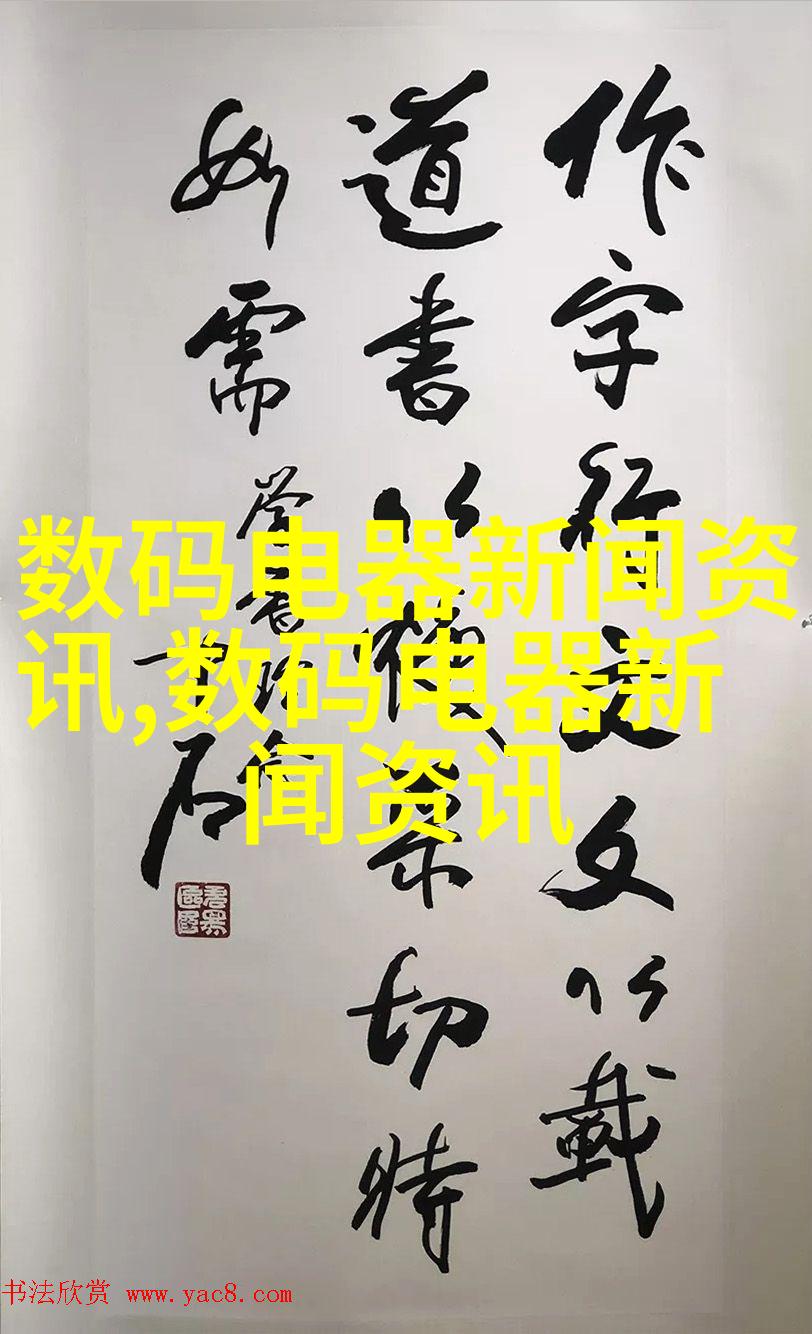 作字行文文以載
道書以煥采切時
如需
数码电器新闻资
讯,数码电器新
闻资讯
书法欣赏 www.yac8.com